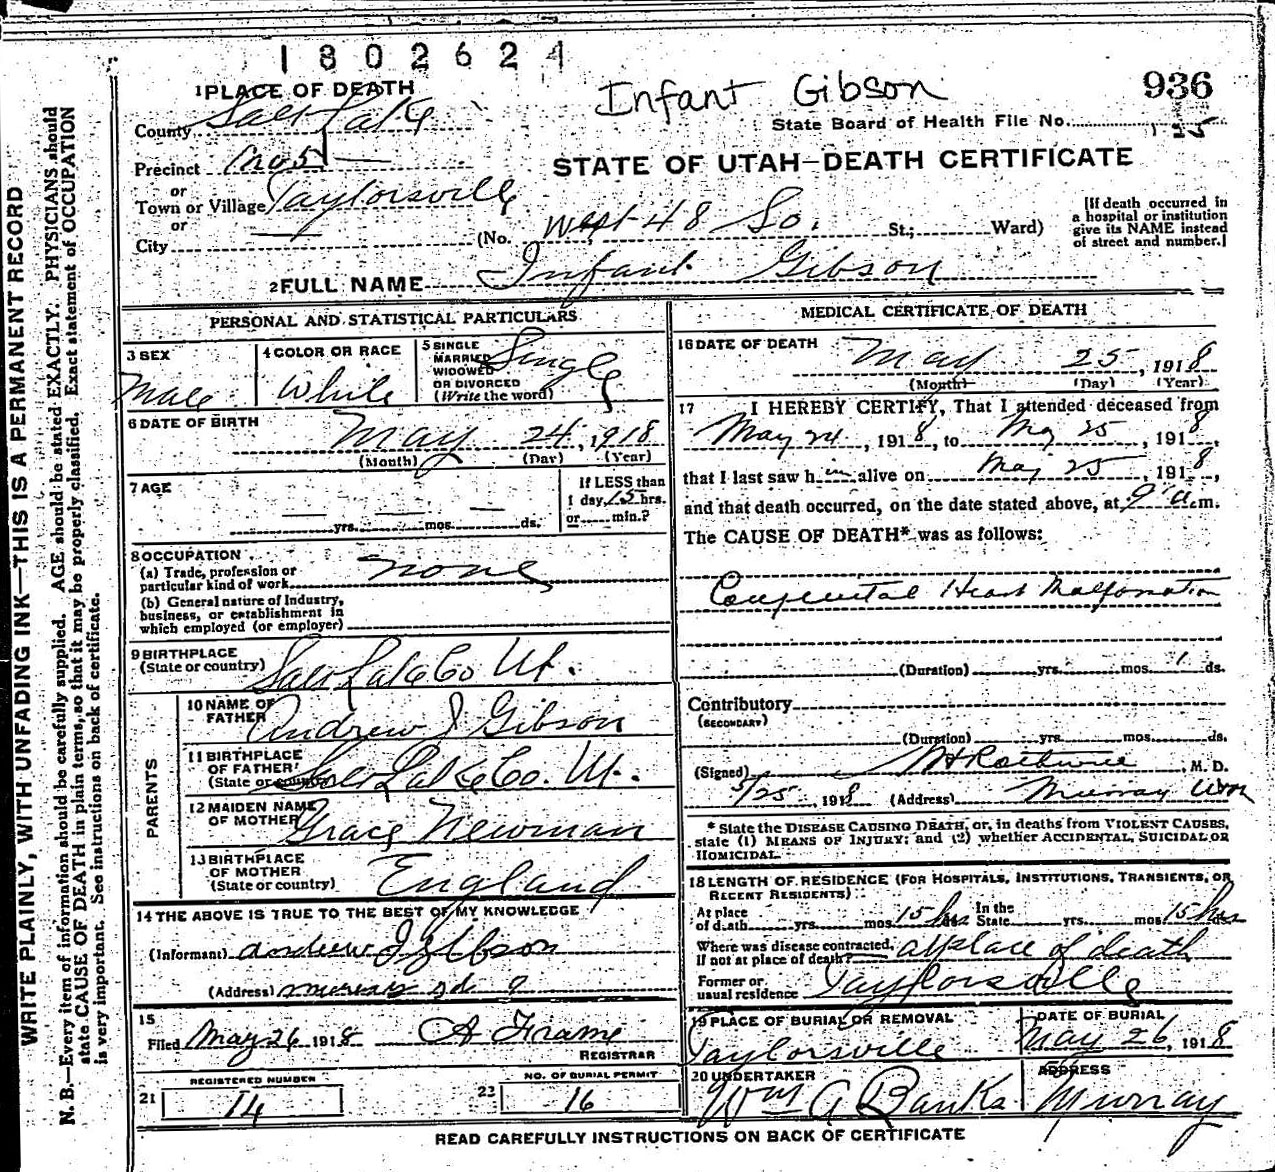 1802624
Infant Gibson
936
1 PLACE OF DEATH
County Salt Lake
State Board of Health File No. 125
Precinct
STATE OF UTAH—DEATH CERTIFICATE
or
Town or Village Taylorsville
or
City
(No. West 48 So. St.; Ward)
[If death occurred in a hospital or institution give its NAME instead of street and number.]
2 FULL NAME Infant Gibson
PERSONAL AND STATISTICAL PARTICULARS
3 SEX
Male
4 COLOR OR RACE
White
5 SINGLE
MARRIED
WIDOWED
OR DIVORCED
(Write the word)
Single
6 DATE OF BIRTH
May 24, 1918
(Month) (Day) (Year)
7 AGE
yrs. mos. ds.
If LESS than
1 day, 15 hrs.
or min.?
8 OCCUPATION
(a) Trade, profession or
particular kind of work None
(b) General nature of Industry,
business, or establishment in
which employed (or employer)
9 BIRTHPLACE
(State or country) Salt Lake Co Ut.
PARENTS
10 NAME OF
FATHER Andrew J Gibson
11 BIRTHPLACE
OF FATHER
(State or country) Salt Lake Co. Ut.
12 MAIDEN NAME
OF MOTHER Grace Newman
13 BIRTHPLACE
OF MOTHER
(State or country) England
14 THE ABOVE IS TRUE TO THE BEST OF MY KNOWLEDGE
(Informant) Andrew J Gibson
(Address) Murray
15
Filed May 26 1918 A Frame
REGISTRAR
REGISTERED NUMBER
21 14
NO. OF BURIAL PERMIT
22 16
MEDICAL CERTIFICATE OF DEATH
16 DATE OF DEATH
May 25, 1918
(Month) (Day) (Year)
17 I HEREBY CERTIFY, That I attended deceased from
May 24, 1918, to May 25, 1918,
that I last saw him alive on May 25, 1918,
and that death occurred, on the date stated above, at 9 a.m.
The CAUSE OF DEATH* was as follows:
Congenital Heart Malformation
(Duration) yrs. mos. 1 ds.
Contributory
(SECONDARY)
(Duration) yrs. mos. ds.
(Signed) M. D.
5/25 1918 (Address) Murray Utah
* State the DISEASE CAUSING DEATH, or, in deaths from VIOLENT CAUSES,
state (1) MEANS OF INJURY; and (2) whether ACCIDENTAL, SUICIDAL OR
HOMICIDAL.
18 LENGTH OF RESIDENCE (FOR HOSPITALS, INSTITUTIONS, TRANSIENTS, OR
RECENT RESIDENTS)
At place
of death yrs. mos 15 hrs In the
State yrs. mos 15 hrs
Where was disease contracted,
if not at place of death? at place of death
Former or
usual residence Taylorsville
19 PLACE OF BURIAL OR REMOVAL
Taylorsville
DATE OF BURIAL
May 26, 1918
20 UNDERTAKER
Wm A Banks
ADDRESS
Murray
READ CAREFULLY INSTRUCTIONS ON BACK OF CERTIFICATE
WRITE PLAINLY, WITH UNFADING INK—THIS IS A PERMANENT RECORD
N. B.—Every item of information should be carefully supplied. AGE should be stated EXACTLY. PHYSICIANS should
state CAUSE OF DEATH in plain terms, so that it may be properly classified. Exact statement of OCCUPATION
is very important. See instructions on back of certificate.